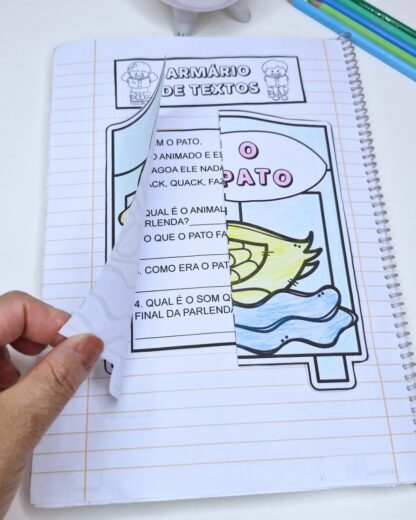 ARMÁRIO
DE TEXTOS
M O PATO,
O ANIMADO E
AGOA ELE NADA
ACK, QUACK, FAZ
QUAL É O ANIMAL
RLENDA?
O QUE O PATO FA
. COMO ERA O PAT
4. QUAL É O SOM
FINAL DA PARLENDA
O
PATO